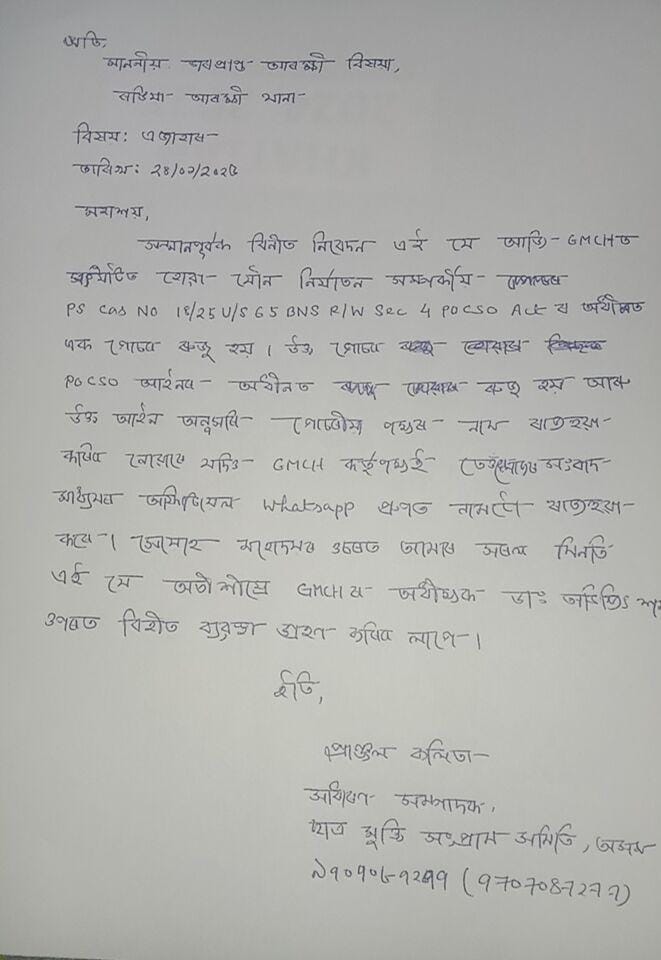 প্ৰতি,
মাননীয় ভাৰপ্ৰাপ্ত আৰক্ষী বিষয়া,
আৰক্ষী থানা
বিষয়: এজাহাৰ
তাৰিখ: ২৪/০২/২০২৫
মহাশয়,
সন্মানপূৰ্বক বিনীত নিবেদন এই যে আজি GMCHত
সংঘটিত হোৱা যৌন নিৰ্যাতন সম্পৰ্কীয়
PS Cas No 18/25 U/S 65 BNS R/W Sec 4 POCSO Act ৰ অধীনত
এক গোচৰ ৰুজু হয়। উক্ত গোচৰ
POCSO আইনৰ অধীনত ৰুজু হয় আৰু
উক্ত আইন অনুসৰি পক্ষৰ নাম ব্যৱহাৰ
কৰিব নোৱাৰে যদিও GMCH কৰ্তৃপক্ষই সংবাদ
মাধ্যমৰ অফিচিয়েল Whatsapp গ্ৰুপত নামটো ব্যৱহাৰ
কৰে। মহোদয়ৰ ওচৰত আমাৰ সবল মিনতি
এই যে অতি শীঘ্ৰে GMCHৰ অধীক্ষক ডাঃ অভিজিৎ
ওপৰত বিহীত ব্যৱস্থা গ্ৰহণ কৰিব লাগে।
ইতি,
প্ৰাঞ্জল কলিতা
সম্পাদক,
ছাত্ৰ মুক্তি সংগ্ৰাম সমিতি, অসম
৯৭০৭০৮৭২৭৭ (9707087277)